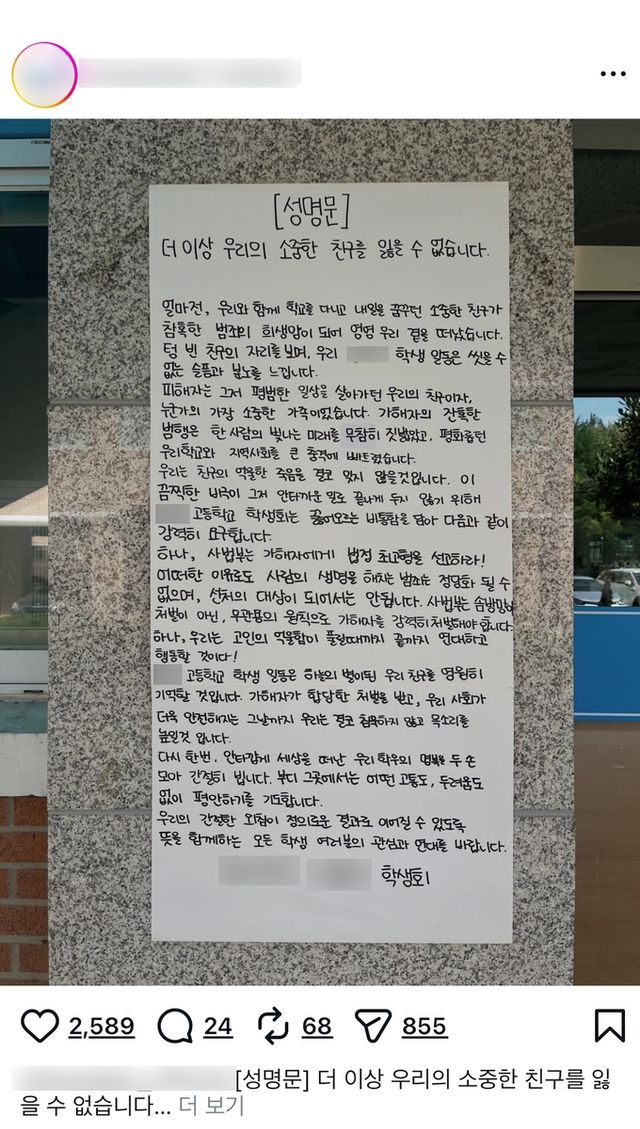 [성명문]
더 이상 우리의 소중한 친구를 잃을 수 없습니다.
얼마전, 우리와 함께 학교를 다니고 내일을 꿈꾸던 소중한 친구가
참혹한 범죄의 희생양이 되어 영영 우리 곁을 떠났습니다.
텅 빈 친구의 자리를 보며, 우리 학생 일동은 씻을 수
없는 슬픔과 분노를 느낍니다.
피해자는 그저 평범한 일상을 살아가던 우리의 친구이자,
누군가의 가장 소중한 가족이었습니다. 가해자의 잔혹한
범행은 한 사람의 빛나는 미래를 무참히 짓밟았고, 평화롭던
우리학교와 지역사회를 큰 충격에 빠트렸습니다.
우리는 친구의 억울한 죽음을 결코 잊지 않을것입니다. 이
끔찍한 비극이 그저 안타까운 일로 끝나게 두지 않기 위해
고등학교 학생회는 끓어오르는 비통함을 담아 다음과 같이
강력히 요구합니다.
하나, 사법부는 가해자에게 법정 최고형을 선고하라!
어떠한 이유로도 사람의 생명을 해치는 범죄는 정당화 될 수
없으며, 선처의 대상이 되어서는 안됩니다. 사법부는 솜방망이
처벌이 아닌, 무관용의 원칙으로 가해자를 강력히 처벌해야 합니다.
하나, 우리는 고인의 억울함이 풀릴때까지 끝까지 연대하고
행동할 것이다!
고등학교 학생 일동은 하늘의 별이된 우리 친구를 영원히
기억할 것입니다. 가해자가 합당한 처벌을 받고, 우리 사회가
더욱 안전해지는 그날까지 우리는 결코 침묵하지 않고 목소리를
높일것 입니다.
다시 한번, 안타깝게 세상을 떠난 우리 학우의 명복을 두 손
모아 간절히 빕니다. 부디 그곳에서는 어떤 고통도, 두려움도
없이 평안하기를 기도합니다.
우리의 간절한 외침이 정의로운 결과로 이어질 수 있도록
뜻을 함께하는 모든 학생 여러분의 관심과 연대를 바랍니다.
학생회
2,589 24 68 855
[성명문] 더 이상 우리의 소중한 친구를 잃
을 수 없습니다... 더 보기